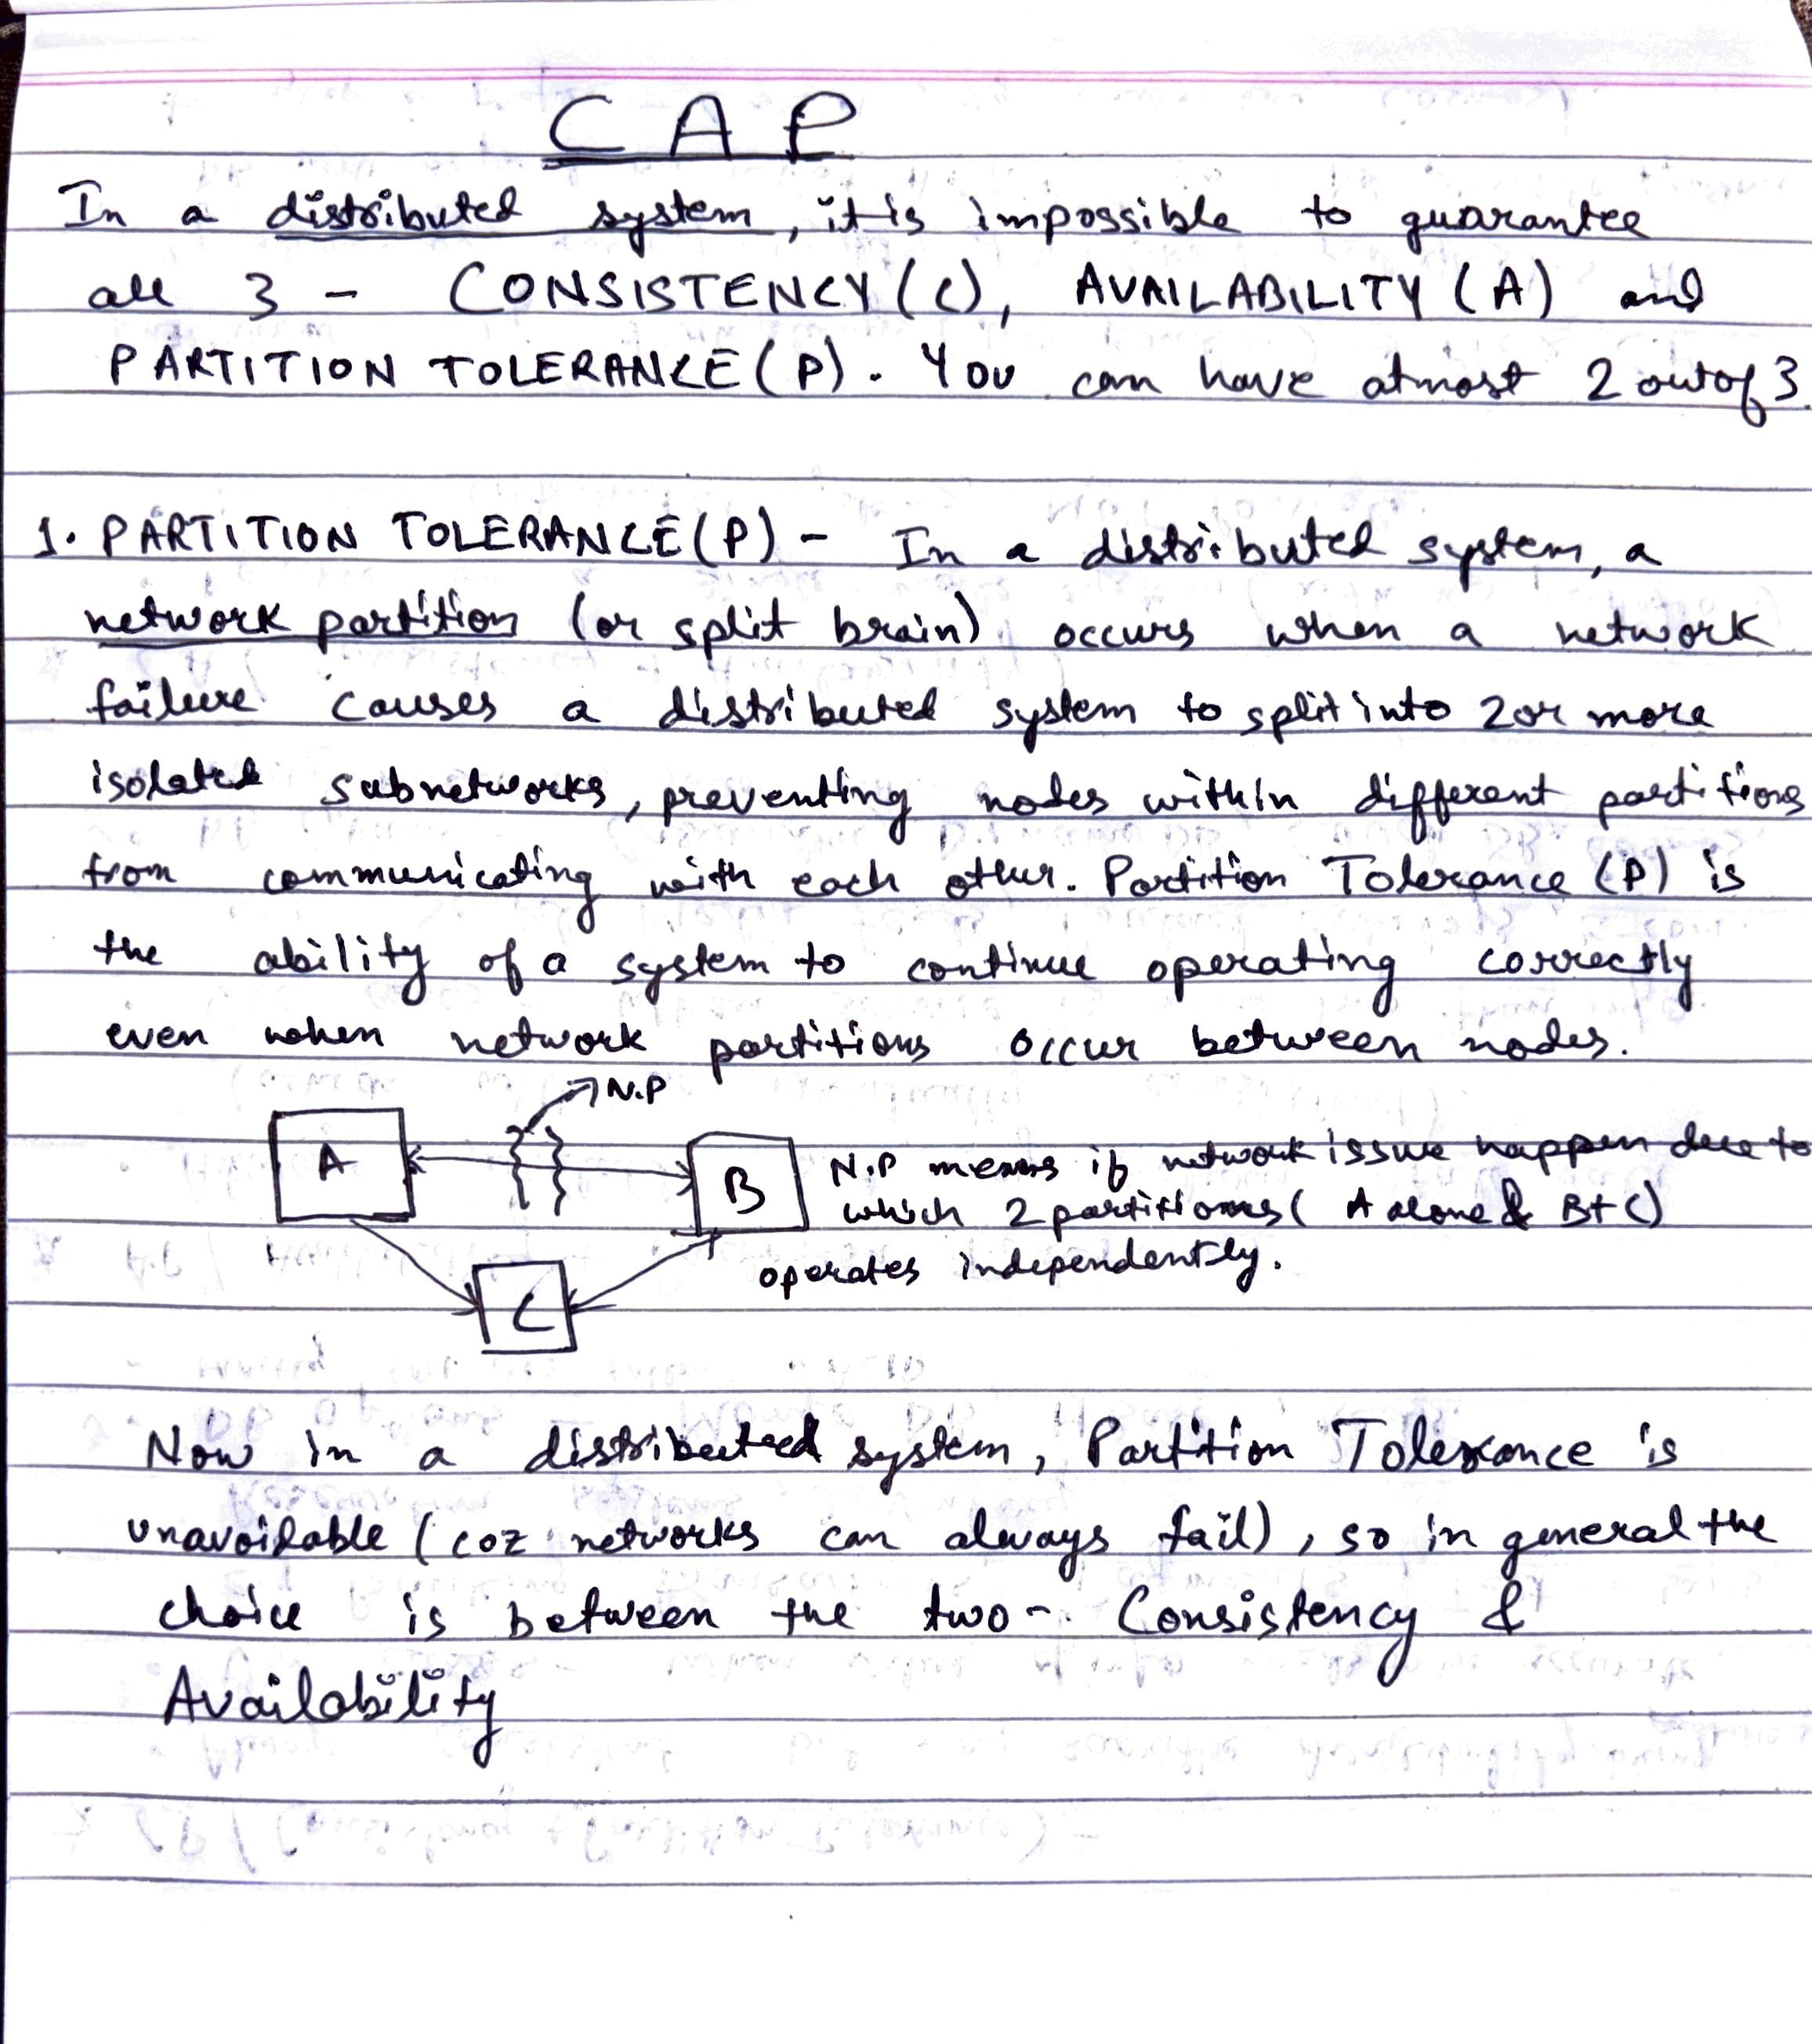 CAP
In a distributed system, it is impossible to guarantee
all 3 - CONSISTENCY (C), AVAILABILITY (A) and
PARTITION TOLERANCE (P). You can have atmost 2 out of 3.
1. PARTITION TOLERANCE (P) - In a distributed system, a
network partition (or split brain) occurs when a network
failure causes a distributed system to split into 2 or more
isolated subnetworks, preventing nodes within different partitions
from communicating with each other. Partition Tolerance (P) is
the ability of a system to continue operating correctly
even when network partitions occur between nodes.
N.P
A
B
N.P means if network issue happen due to
which 2 partitions ( A alone & B+C)
operates independently.
C
Now in a distributed system, Partition Tolerance is
unavoidable (coz networks can always fail), so in general the
choice is between the two - Consistency &
Availability